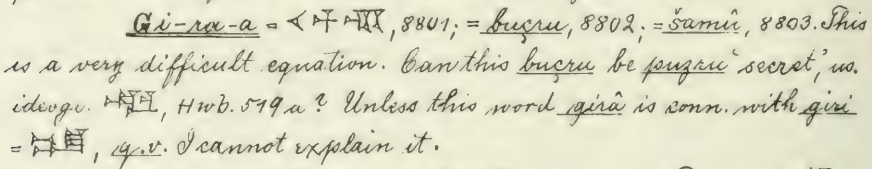 Gi-ra-a = 𒌋 , 8801; = buçru, 8802; = šamû, 8803. This
is a very difficult equation. Can this buçru be puzru 'secret,' us.
ideogr. , Hwb. 519 a? Unless this word girâ is conn. with giri
= , q.v. I cannot explain it.